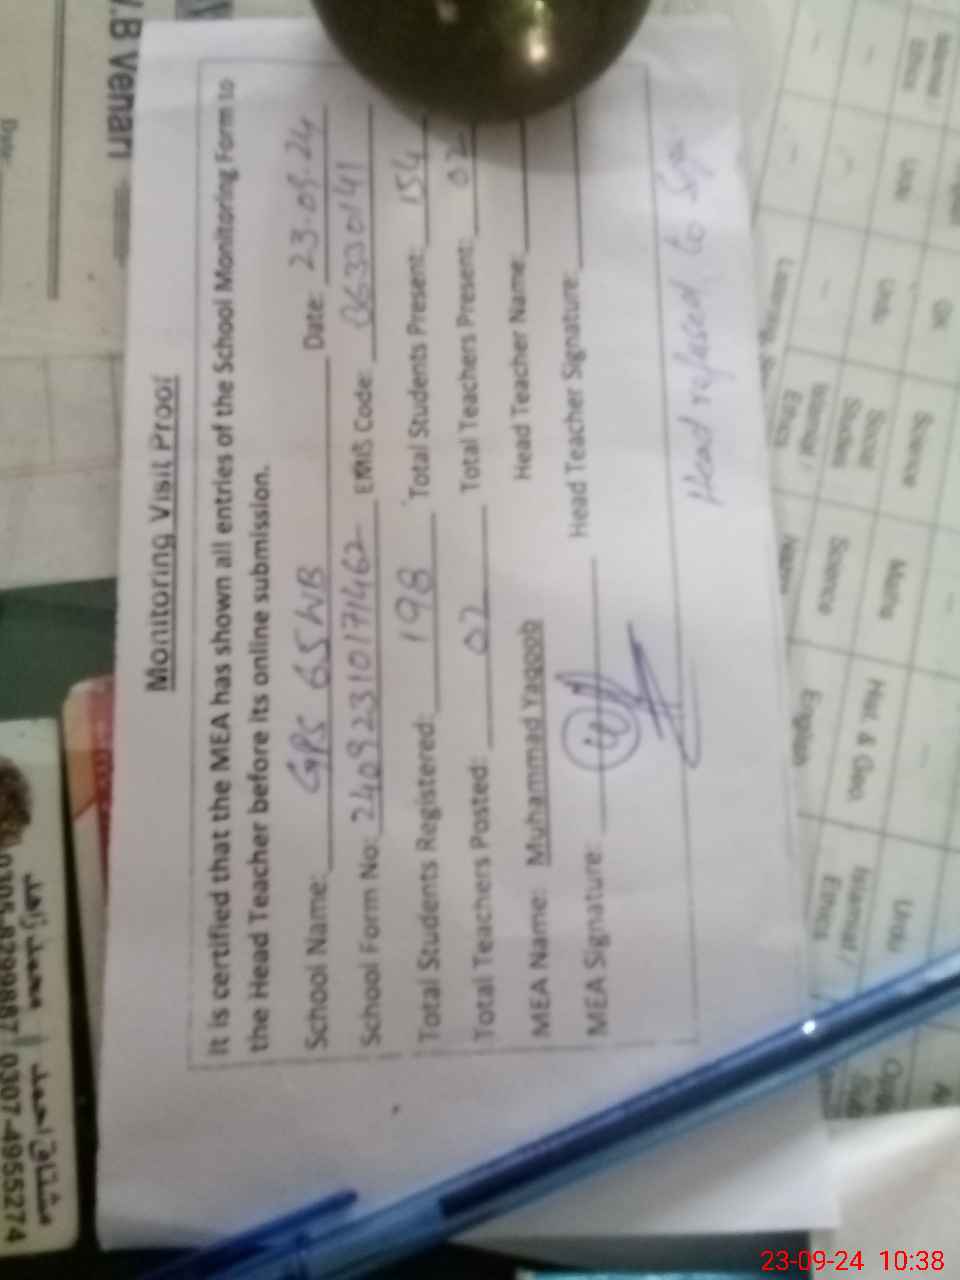 Monitoring Visit Proof
It is certified that the MEA has shown all entries of the School Monitoring Form to
the Head Teacher before its online submission.
School Name: GPS 65WB Date: 23.09.24
School Form No: 24092310171462 EMIS Code: 06330141
Total Students Registered: 198 Total Students Present: 154
Total Teachers Posted: 02 Total Teachers Present: 02
MEA Name: Muhammad Yaqoob Head Teacher Name:
MEA Signature: Head Teacher Signature:
Head refused to Sign
V.B Vehari
Urdu
Islamiat /
Ethics
Hist. & Geo.
English
Maths
Science
Science
Social
Studies
Islamiat /
Ethics
Urdu
Urdu
محمد زاہد
مشتاق احمد
0307-4955274
23-09-24 10:38